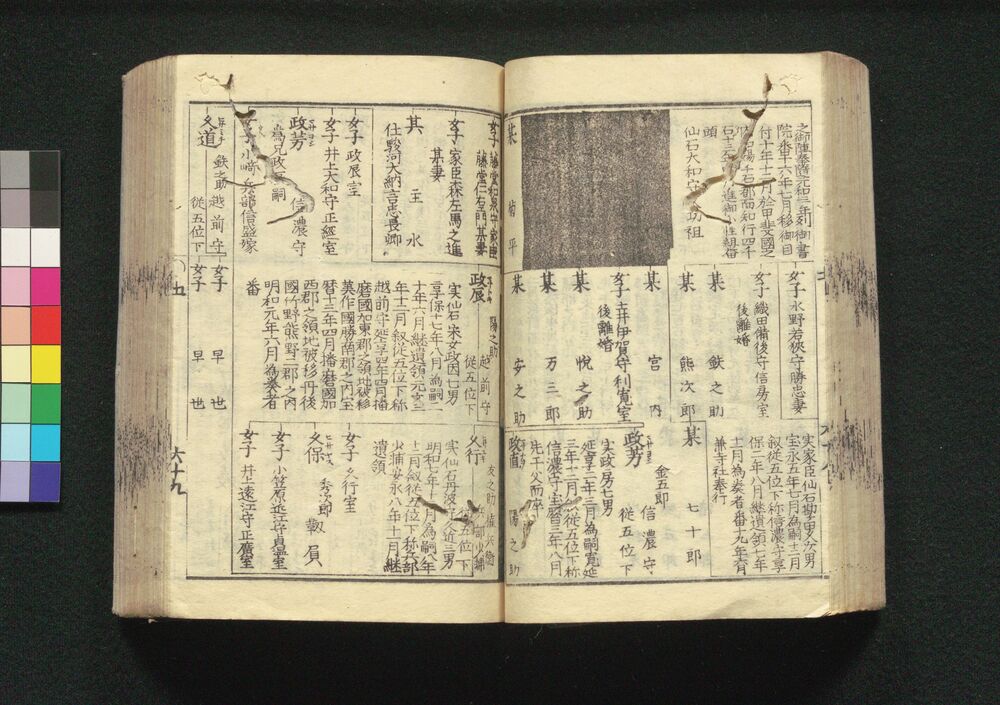 之御陣奉薩元和三年列御書
院番十六年七月移御目
付十年十二月於甲斐國之
千石都而知行四千
頭
仙石大和守 助祖
某 菊平
女子 水野若狭守勝忠妻
女子 織田備後守信房室
後離婚
某 欽之助
某 熊次郎
某 宮内
女子 土井伊賀守利寛室
後離婚
某 悅之助
某 万三郎
某 安之助
實家臣仙石勘
宝永五年七月為嗣十二月
叙従五位下称信濃守享
保二年八月継遺領七年
十二月為奏者番十九年有
兼寺社奉行
某 七十郎
政芳
金五郎
信濃守
従五位下
実政房七男
延享二年三月為嗣寛延
三年十二月叙従五位下称
信濃守宝暦三年八月
先于父而卒
政直 陽之助
女子 藤堂和泉守家臣
藤堂仁右門某妻
女子 家臣森左馬之進
某妻
某 主水
仕駿河大納言忠長卿
女子 政辰室
女子 井上大和守正經室
政芳 信濃守
為兄政 嗣
女子 小崎兵部信盛嫁
久道 鉄之助 越前守
従五位下
政辰 陽之助
越前守
従五位下
実仙石宋女政因七男
享保十七年八月為嗣二
十年六月継遺領元文三
年十二月叙従五位下称
越前守延享四年四月播
磨國加東郡之領地被移
美作國勝南郡之内宝
暦十三年四月播磨國加
西郡之領地被移丹後
國竹野熊野二郡之内
明和元年六月為奏者
番
女子 早世
女子 早世
久行 友之助
兵部少輔
従五位下
実仙石丹波守久近三男
明和七年 月為嗣八年
十二月叙従五位下称兵部
少輔安永八年十二月継
遺領
女子 久行室
久保 秀次郎 靱負
女子 小笠原近江守貞温室
女子 井上遠江守正廣室
五
六十九